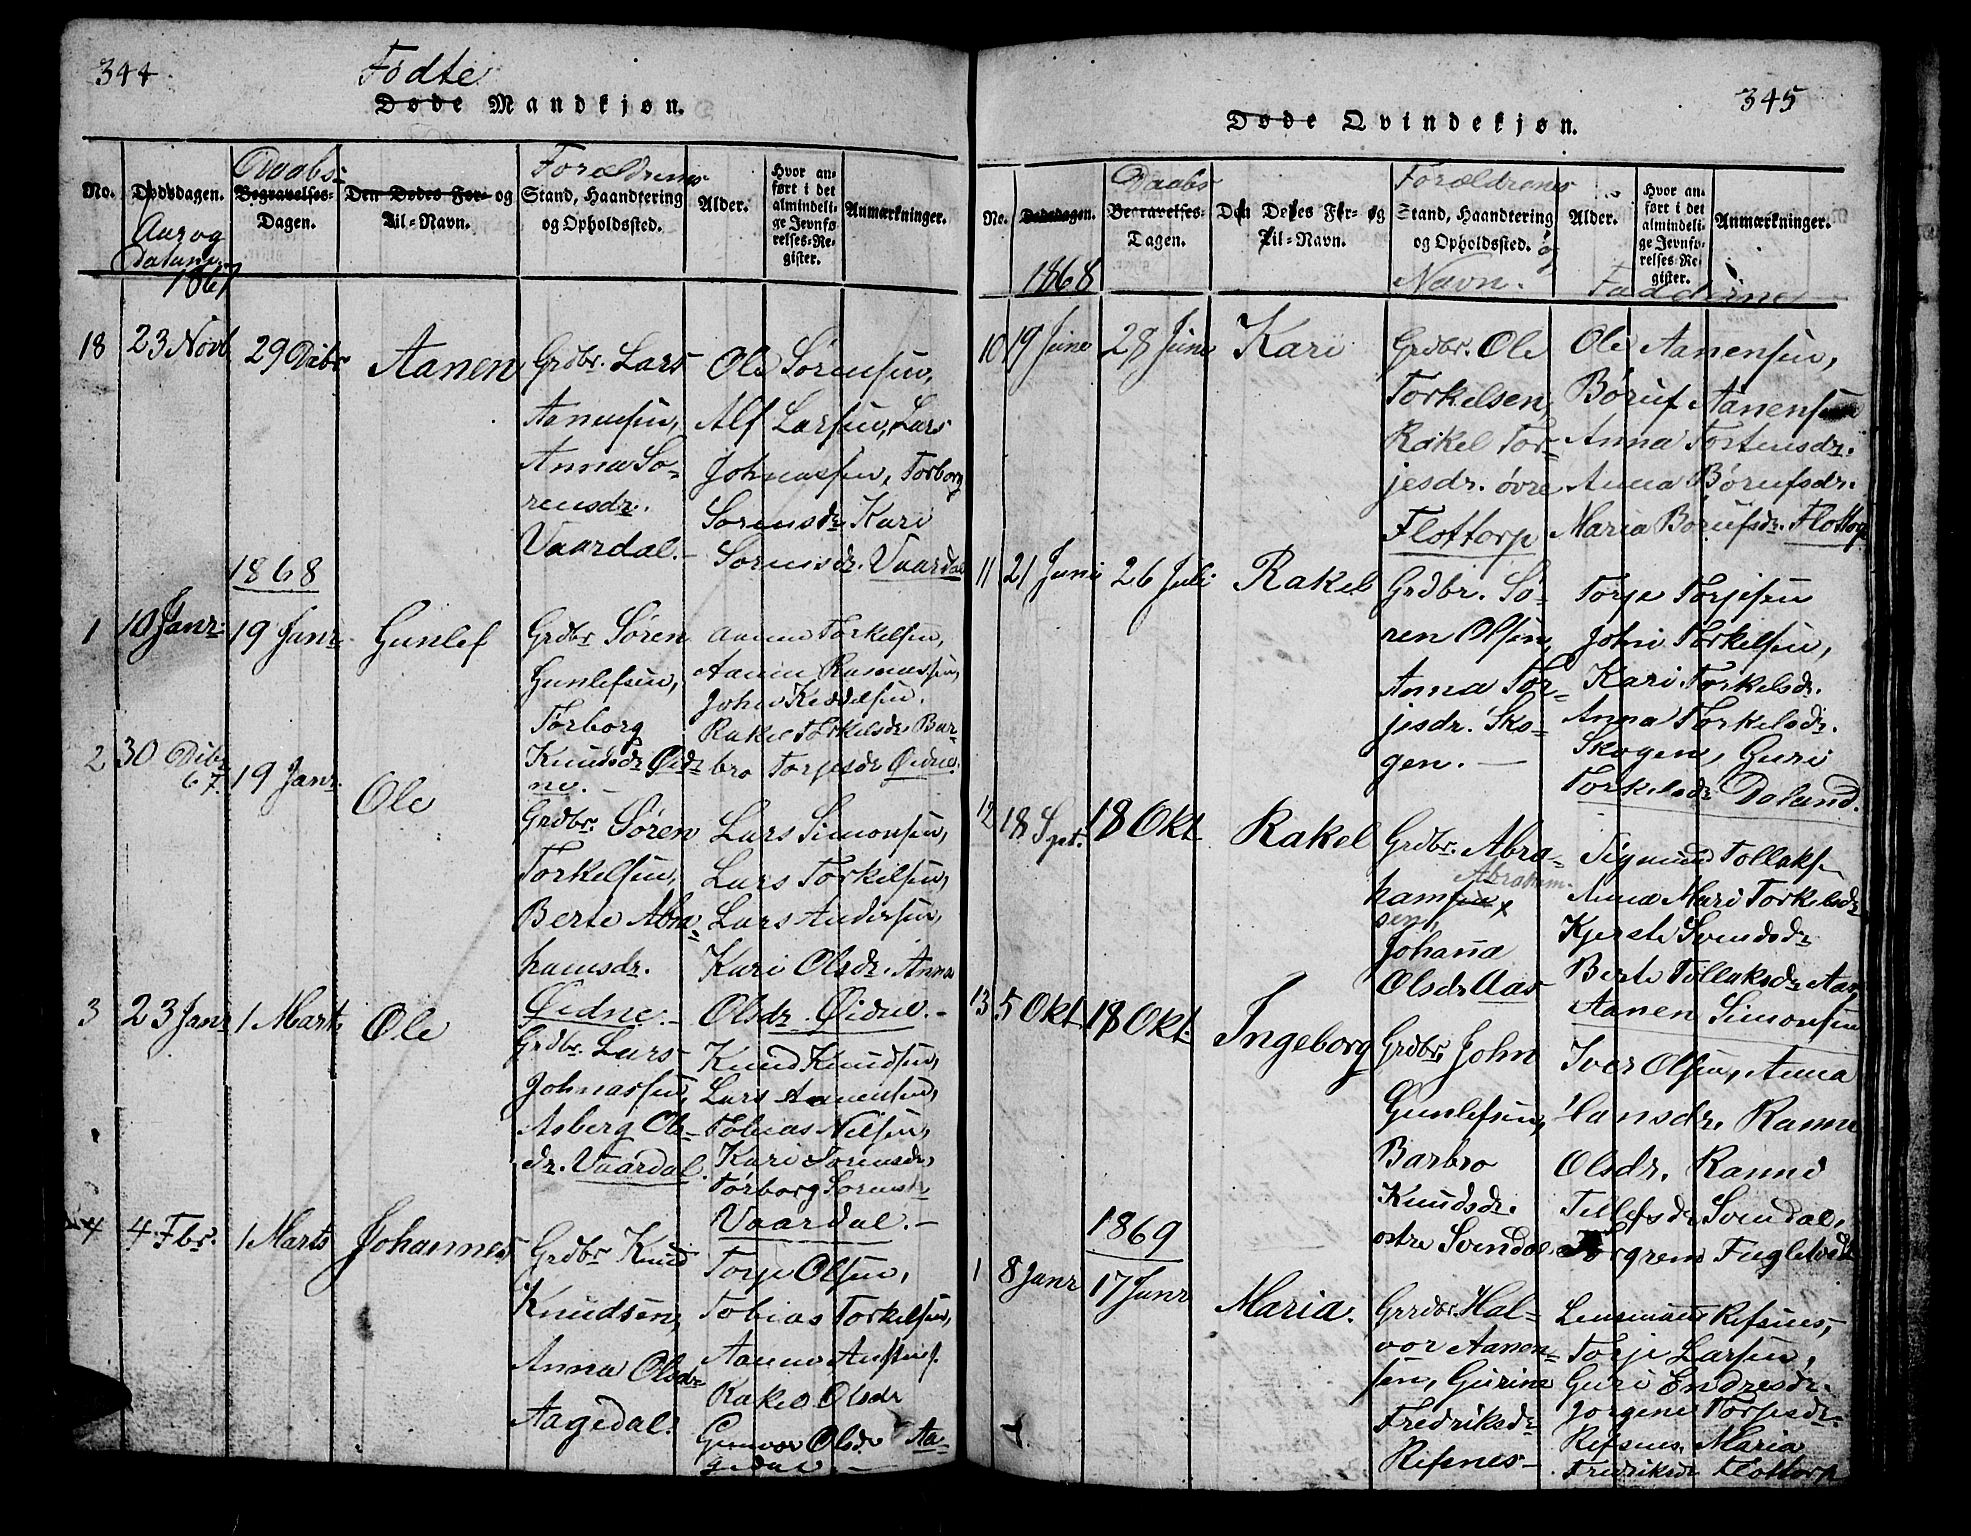 344
Födte
Døde Mandkjøn.
No.
Dødsdagen.
Aar og
Datum
1867
Daabs-
Begravelses-
Dagen.
Den Dødes For- og
Til-Navn.
Forældrenes
Stand, Haandtering
og Opholdssted.
Alder.
Hvor an-
ført i det
almindeli-
ge Jevnfø-
relses-Re-
gister.
Anmærkninger.
18 23 Novb 29 Dcbr Aanen
Grdbr. Lars
Aanensen,
Anna So-
rensdr.
Vaardal.-
Ole Sørensen,
Alf Larsen, Lars
Johnassen, Torborg
Sorensdr Kari
Sorensdr. Vaardal
1868
1 10 Janr. 19 Janr. Gunlef
Grdbr Søren
Gunlefsen,
Torborg
Knudsdr Øid-
ne.-
Aanen Torkelsen,
Aanen Rasmussen,
John Keddelsen.
Rakel Torkelsdr Bar-
bro Torjesdr Øidne.
2 30 Dcbr 67. 19 Janr. Ole
Grdbr. Søren
Torkelsen,
Berte Abra-
hamsdr.
Øidne.-
Lars Simonsen,
Lars Torkelsen,
Lars Andersen,
Kari Olsdr. Anna
Olsdr. Øidne.-
3 23 Janr 1 Marts Ole
Grdbr. Lars
Johnassen,
Asberg Ols-
dr. Vaardal.
Knud Knudsen,
Lars Aanensen,
Tobias Nilsen,
Kari Sorensdr,
Torborg Sorensdr
Vaardal.-
4 4 Fbr. 1 Marts Johannes
Grdbr Knud
Knudsen,
Anna Olsdr
Aagedal.
Torje Olsen,
Tobias Torkelsen,
Aanen
Rakel Olsdr
Gunvor Olsdr Aa-
gedal -
345
Døde Qvindekjøn.
No.
Dødsdagen.
1868
Daabs
Begravelses-
Dagen.
Den Dødes For- og
Til-Navn.
Forældrenes
Stand, Haandtering
og Opholdssted. og
Navn.
Alder.
Hvor an-
ført i det
almindeli-
ge Jevnfø-
relses-Re-
gister.
Anmærkninger.
Fadderne
10 19 Juni 28 Juni Kari
Grdbr. Ole
Torkelsen,
Rakel Tor-
jesdr. øvre
Flottorp
Ole Aanensen,
Børuf Aanensen
Anna Tortensdr.
Anna Børufsdr.
Maria Borufsdr. Flottorp
11 21 Juni 26 Juli Rakel
Grdbr. Sø-
ren Olsen,
Anna Tor-
jesdr. Sko-
gen.-
Torje Torjesen
John Torkelsen,
Kari Torkelsdr.
Anna Torkelsdr.
Skogen, Guri
Torkelsdr Doland.
12 18 Sept. 18 Okt Rakel
Grdbr. Abra-
Abraham-
hamsen x
sen,
Johana
Olsdr Aas
Sigmund Tollaks
Anna Mari Torkelsdr
Kjerste Svendsdr
Berte Tollaksdr Aas
Aanen Simonsen
13 5 Okt 18 Okt. Ingeborg
Grdbr John
Gunlefsen,
Barbro
Knudsdr.
ostre Svendal
Iver Olsen, Anna
Hansdr. Ranne
Olsdr. Ranni
Tellefsdr Svendal,
Torgrem Fugletvedt
1869
1 8 Janr 17 Janr Maria.
Grrdbr. Hal-
vor Aanen-
sen, Gurine
Fredriksdr
Rifsnes-
Lensmand Rifsnes,
Torje Larsen,
Guri Endresdr.
Jorgene Torjesdr
Rifsnes, Maria
Fredriksdr Flottorp